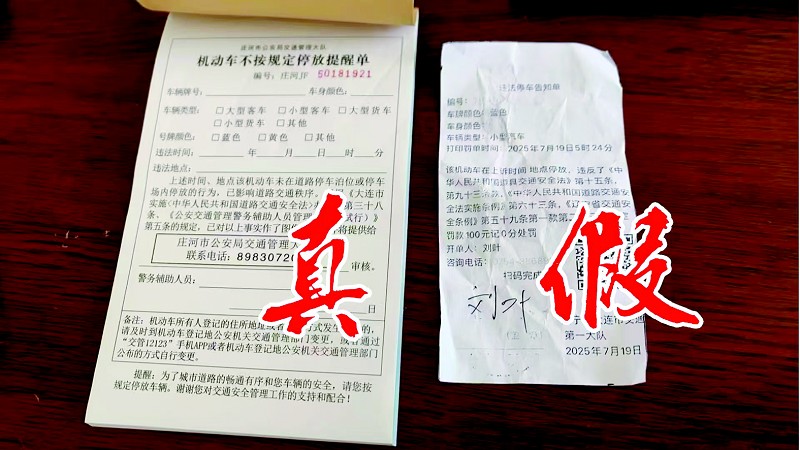 庄河市公安局交通管理大队
机动车不按规定停放提醒单
编号：庄河JF 50181921
车辆牌号： 车身颜色：
车辆类型：□大型客车 □小型客车 □大型货车
□小型货车 □其他
号牌颜色：□蓝色 □黄色 □其他
违法时间： 年 月 日 时 分
违法地点：
上述时间、地点该机动车未在道路停车泊位或停车
场内停放的行为，已影响道路交通秩序。
《大连市
实施〈中华人民共和国道路交通安全法〉
第三十八
条、《公安交通管理警务辅助人员管理
试行）》
第五条的规定，已对以上事实作了图
将提供给
庄河市公安局交通管理大
联系电话：8983072
审核。
警务辅助人员：
日
备注：机动车所有人登记的住所地址或者
方式发生
的，
请及时到机动车登记地公安机关交通管理部门变更，或者通过
“交管12123”手机APP或者机动车登记地公安机关交通管理部门
公布的方式自行变更。
提醒：为了城市道路的畅通有序和您车辆的安全，请您按
规定停放车辆。谢谢您对交通安全管理工作的支持和配合！
真
违法停车告知单
编号：
车牌颜色：蓝色
车身颜色：
车辆类型：小型汽车
打印罚单时间：2025年7月19日5时24分
该机动车在上诉时间 地点停放，违反了《中
华人民共和国道具交通安全法》第十五条、
第九十三条、《中华人民共和国道路交通安
全法实施条例》第六十三条、《辽宁省交通安
全条例》第五十九条第一款第二
罚款100元记0分处罚
开单人：刘叶
咨询电话：
扫码完成
刘叶
连市交通
第一大队
2025年7月19日
假